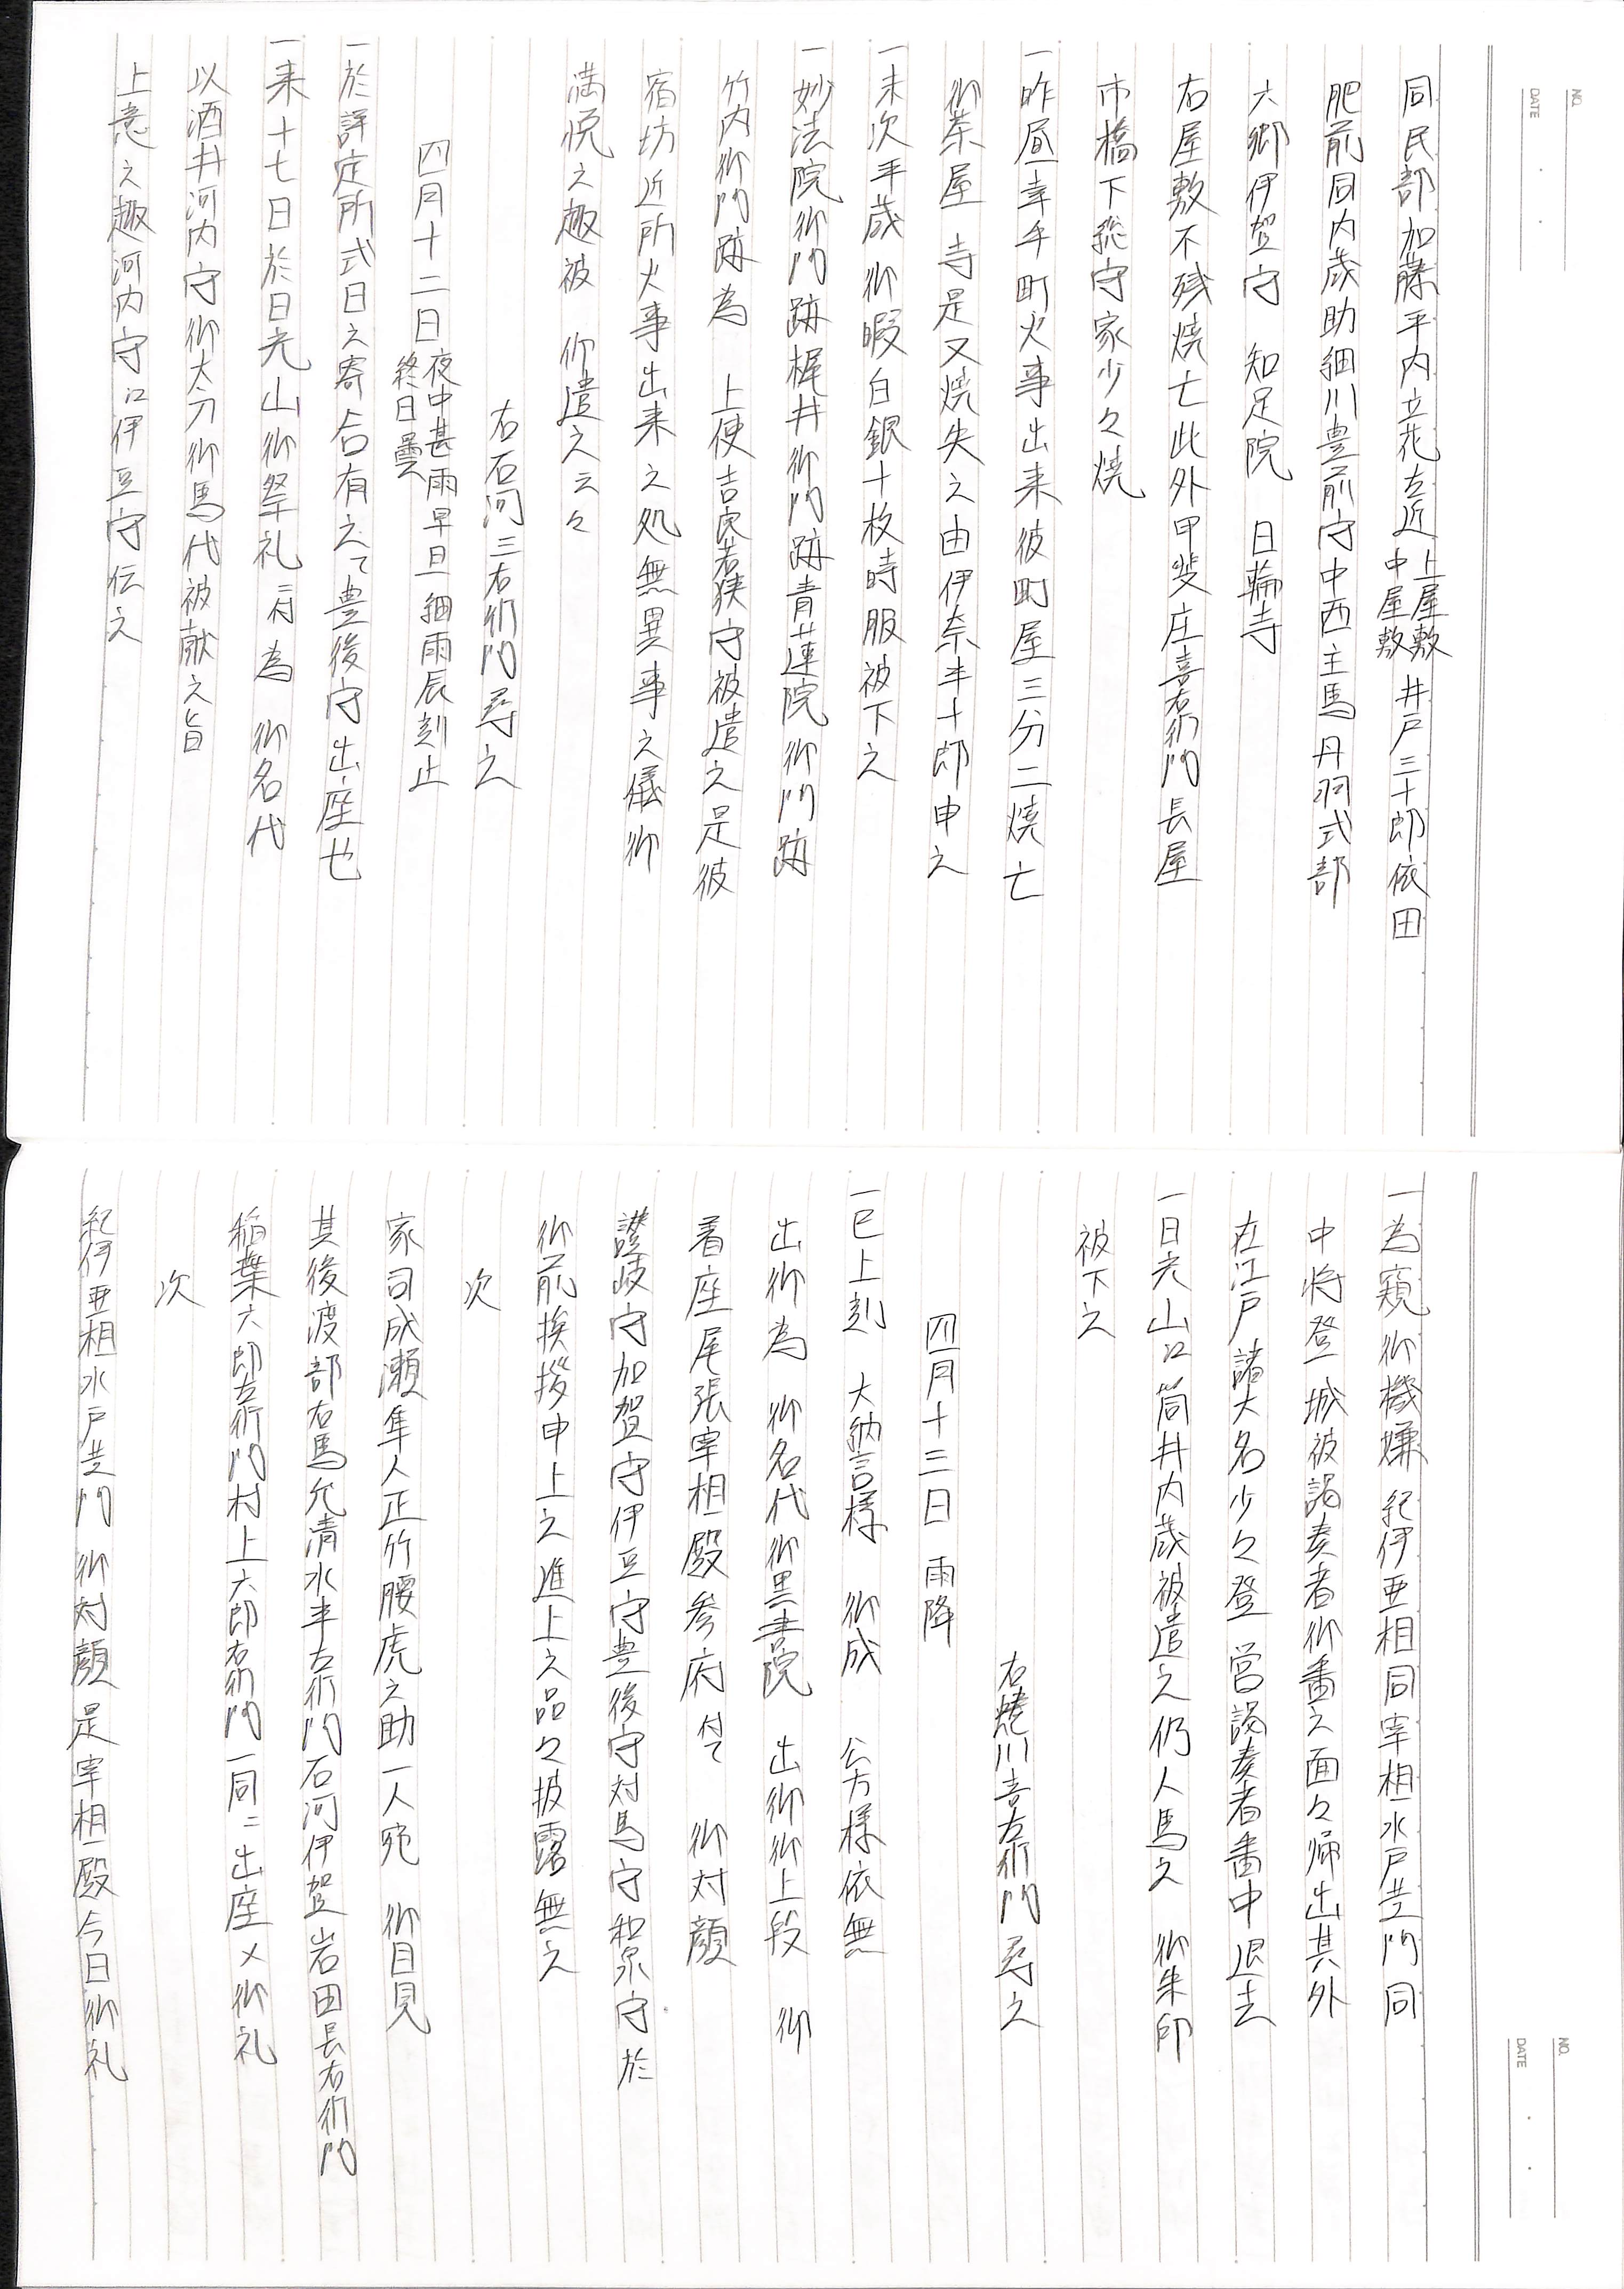 NO.
DATE
同民部加藤平内立花左近上屋敷中屋敷井戸三十郎依田
肥前同内蔵助細川豊前守中西主馬丹羽式部
六郷伊賀守 知足院 日輪寺
右屋敷不残焼亡此外甲斐庄喜右衛門長屋
市橋下総守家少々焼
一昨昼幸手町火事出来彼町屋三分二焼亡
御茶屋 寺是又焼失之由伊奈半十郎申之
一末次平蔵御暇白銀十枚時服被下之
一妙法院御門跡梶井御門跡青蓮院御門跡
竹内御門跡為 上使吉良若狭守被遣之是彼
宿坊近所火事出来之処無異事之儀御
満悦之趣被 仰遣之云々
右石河三右衛門尋之
四月十二日夜中甚雨早旦細雨辰刻止終日曇
一於評定所式日之寄合有之て豊後守出座也
一来十七日於日光山御祭礼ニ付為 御名代
以酒井河内守御太刀御馬代被献之旨
上意之趣河内守江伊豆守伝之
NO.
DATE
一為窺御機嫌紀伊亜相同宰相水戸黄門同
中将登城被謁奏者御番之面々帰出其外
在江戸諸大名少々登 営謁奏者番中退去
一日光山江筒井内蔵被遣之仍人馬之 御朱印
被下之
右蜷川喜左衛門尋之
四月十三日 雨降
一巳上刻 大納言様 御成 公方様依無
出御為 御名代御黒書院 出御御上段 御
着座尾張宰相殿参府付て 御対顔
讃岐守加賀守伊豆守豊後守対馬守和泉守於
御前挨拶申上之進上之品々披露無之
次
家司成瀬隼人正竹腰虎之助一人宛 御目見
其後渡部右馬允清水半左衛門石河伊賀岩田長右衛門
稲葉六郎左衛門村上六郎右衛門一同ニ出座〆御礼
次
紀伊亜相水戸黄門 御対顔是宰相殿今日御礼